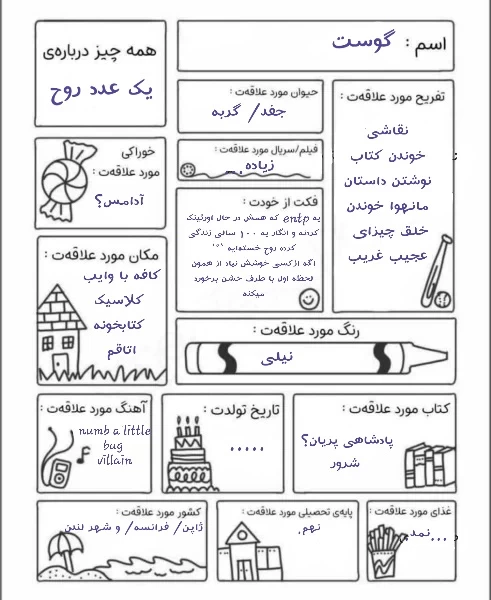 همه چیز درباره‌ی
یک عدد روح
اسم : گوست
حیوان مورد علاقه‌ت :
جغد/ گربه
تفریح مورد علاقه‌ت :
نقاشی
خوندن کتاب
نوشتن داستان
مانهوا خوندن
خلق چیزای
عجیب غریب
خوراکی
مورد علاقه‌ت :
آدامس؟
فیلم/سریال مورد علاقه‌ت :
زیاده
فکت از خودت :
یه entp که همش در حال اورثینک
کردنه و انگار یه ۱۰۰ سالی زندگی
کرده روح خستهایه
اگه از کسی خوشش نیاد از همون
لحظه اول با طرف خشن برخورد
میکنه
مکان مورد علاقه‌ت :
کافه با وایب
کلاسیک
کتابخونه
اتاقم
رنگ مورد علاقه‌ت :
نیلی
آهنگ مورد علاقه‌ت :
numb a little
bug
villain
تاریخ تولدت :
.....
کتاب مورد علاقه‌ت :
پادشاهی پریان؟
شرور
کشور مورد علاقه‌ت :
ژاپن/ فرانسه/ و شهر لندن
پایه‌ی تحصیلی مورد علاقه‌ت :
نهم.
غذای مورد علاقه‌ت :